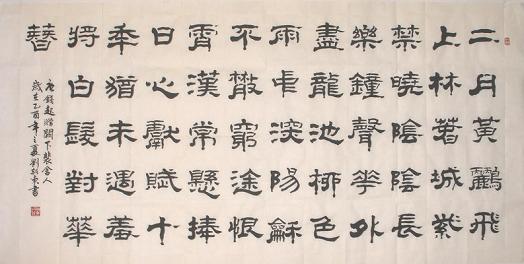 二月黃鸝飛
上林萅城紫
禁曉陰陰長
樂鐘聲華外
盡龍池柳色
雨中深陽龢
不散窮途恨
霄漢常懸捧
日心獻賦十
年猶未遇羞
將白髮對華
簪
唐錢起贈闕下裴舍人
歲在乙酉年之夏劉東書